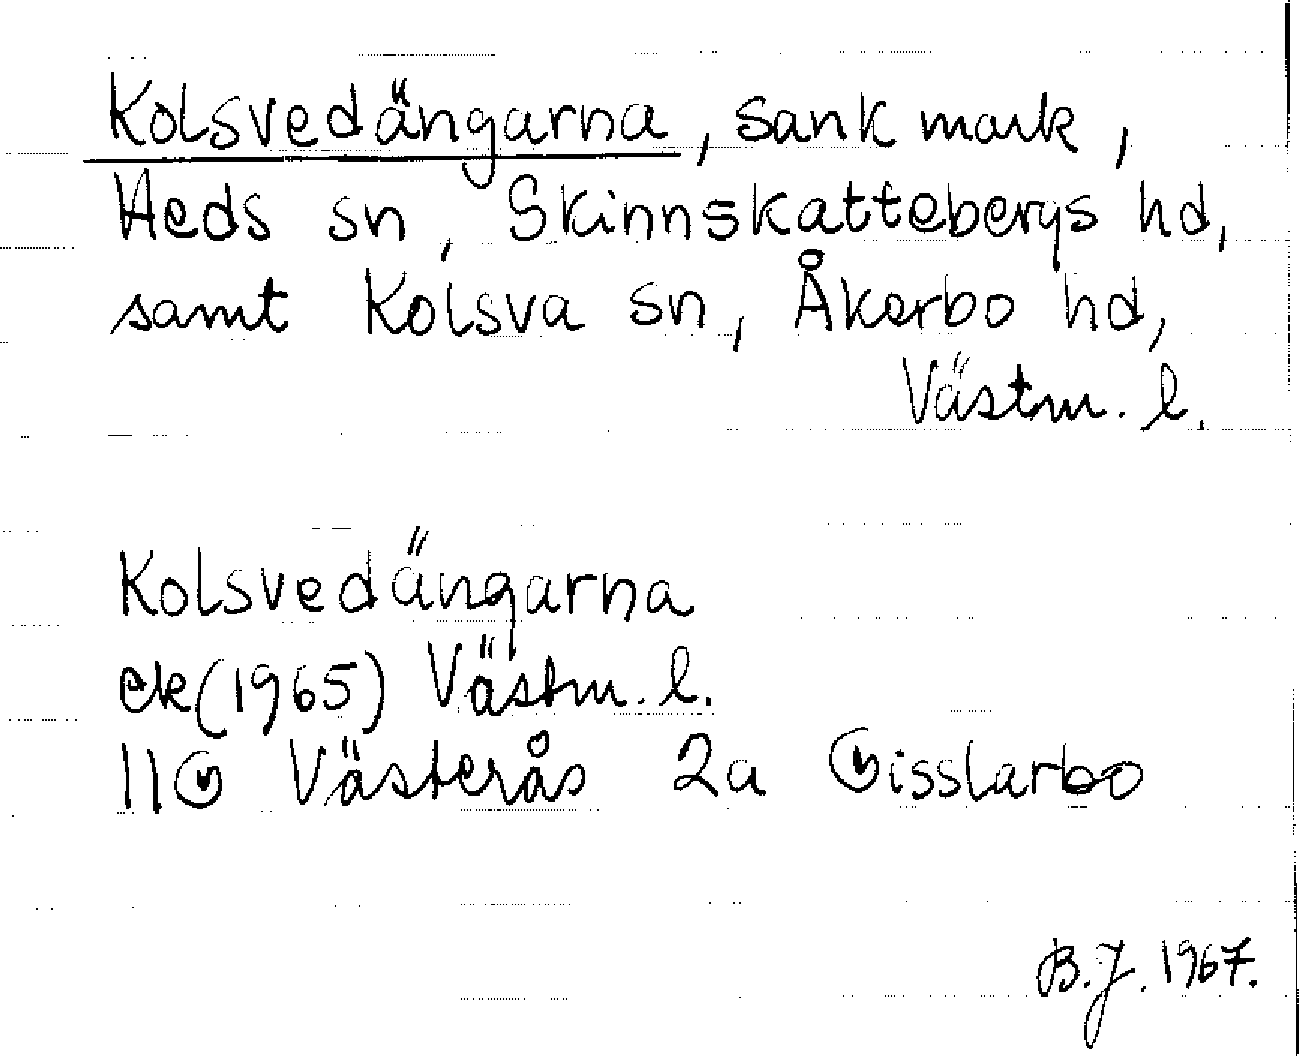 Kolsvedängarna, sank mark,
Heds sn, Skinnskattebergs hd,
samt Kolsva sn, Åkerbo hd,
Västm. l.
Kolsvedängarna
ek (1965) Västm. l.
11G Västerås 2a Gisslarbo
B.J. 1967.